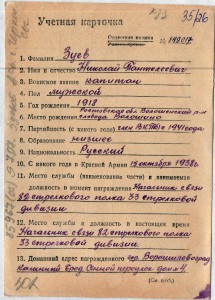 35/26
Учетная карточка
№ 149017
1. Фамилия Зуев
2. Имя и отчество Николай Пантелеевич
3. Воинское звание капитан
4. Пол мужской
5. Год рождения 1918
Ростовская обл. Волошинский р-н
слобода Волошино
7. Партийность (с какого года) член ВКП(б) с 1941 года
8. Образование низшее
9. Национальность Русский
10. С какого года в Красной Армии 15 октября 1938 г.
11. Место службы (наименование части) и занимаемая
должность в момент награждения Начальник
связи 82 стрелкового полка 33 стрелковой
дивизии
12. Место службы и должность в настоящее время
Начальник связи 82 стрелкового полка
33 стрелковой дивизии.
13. Домашний адрес награжденного гор. Ворошиловоград
дом 4.